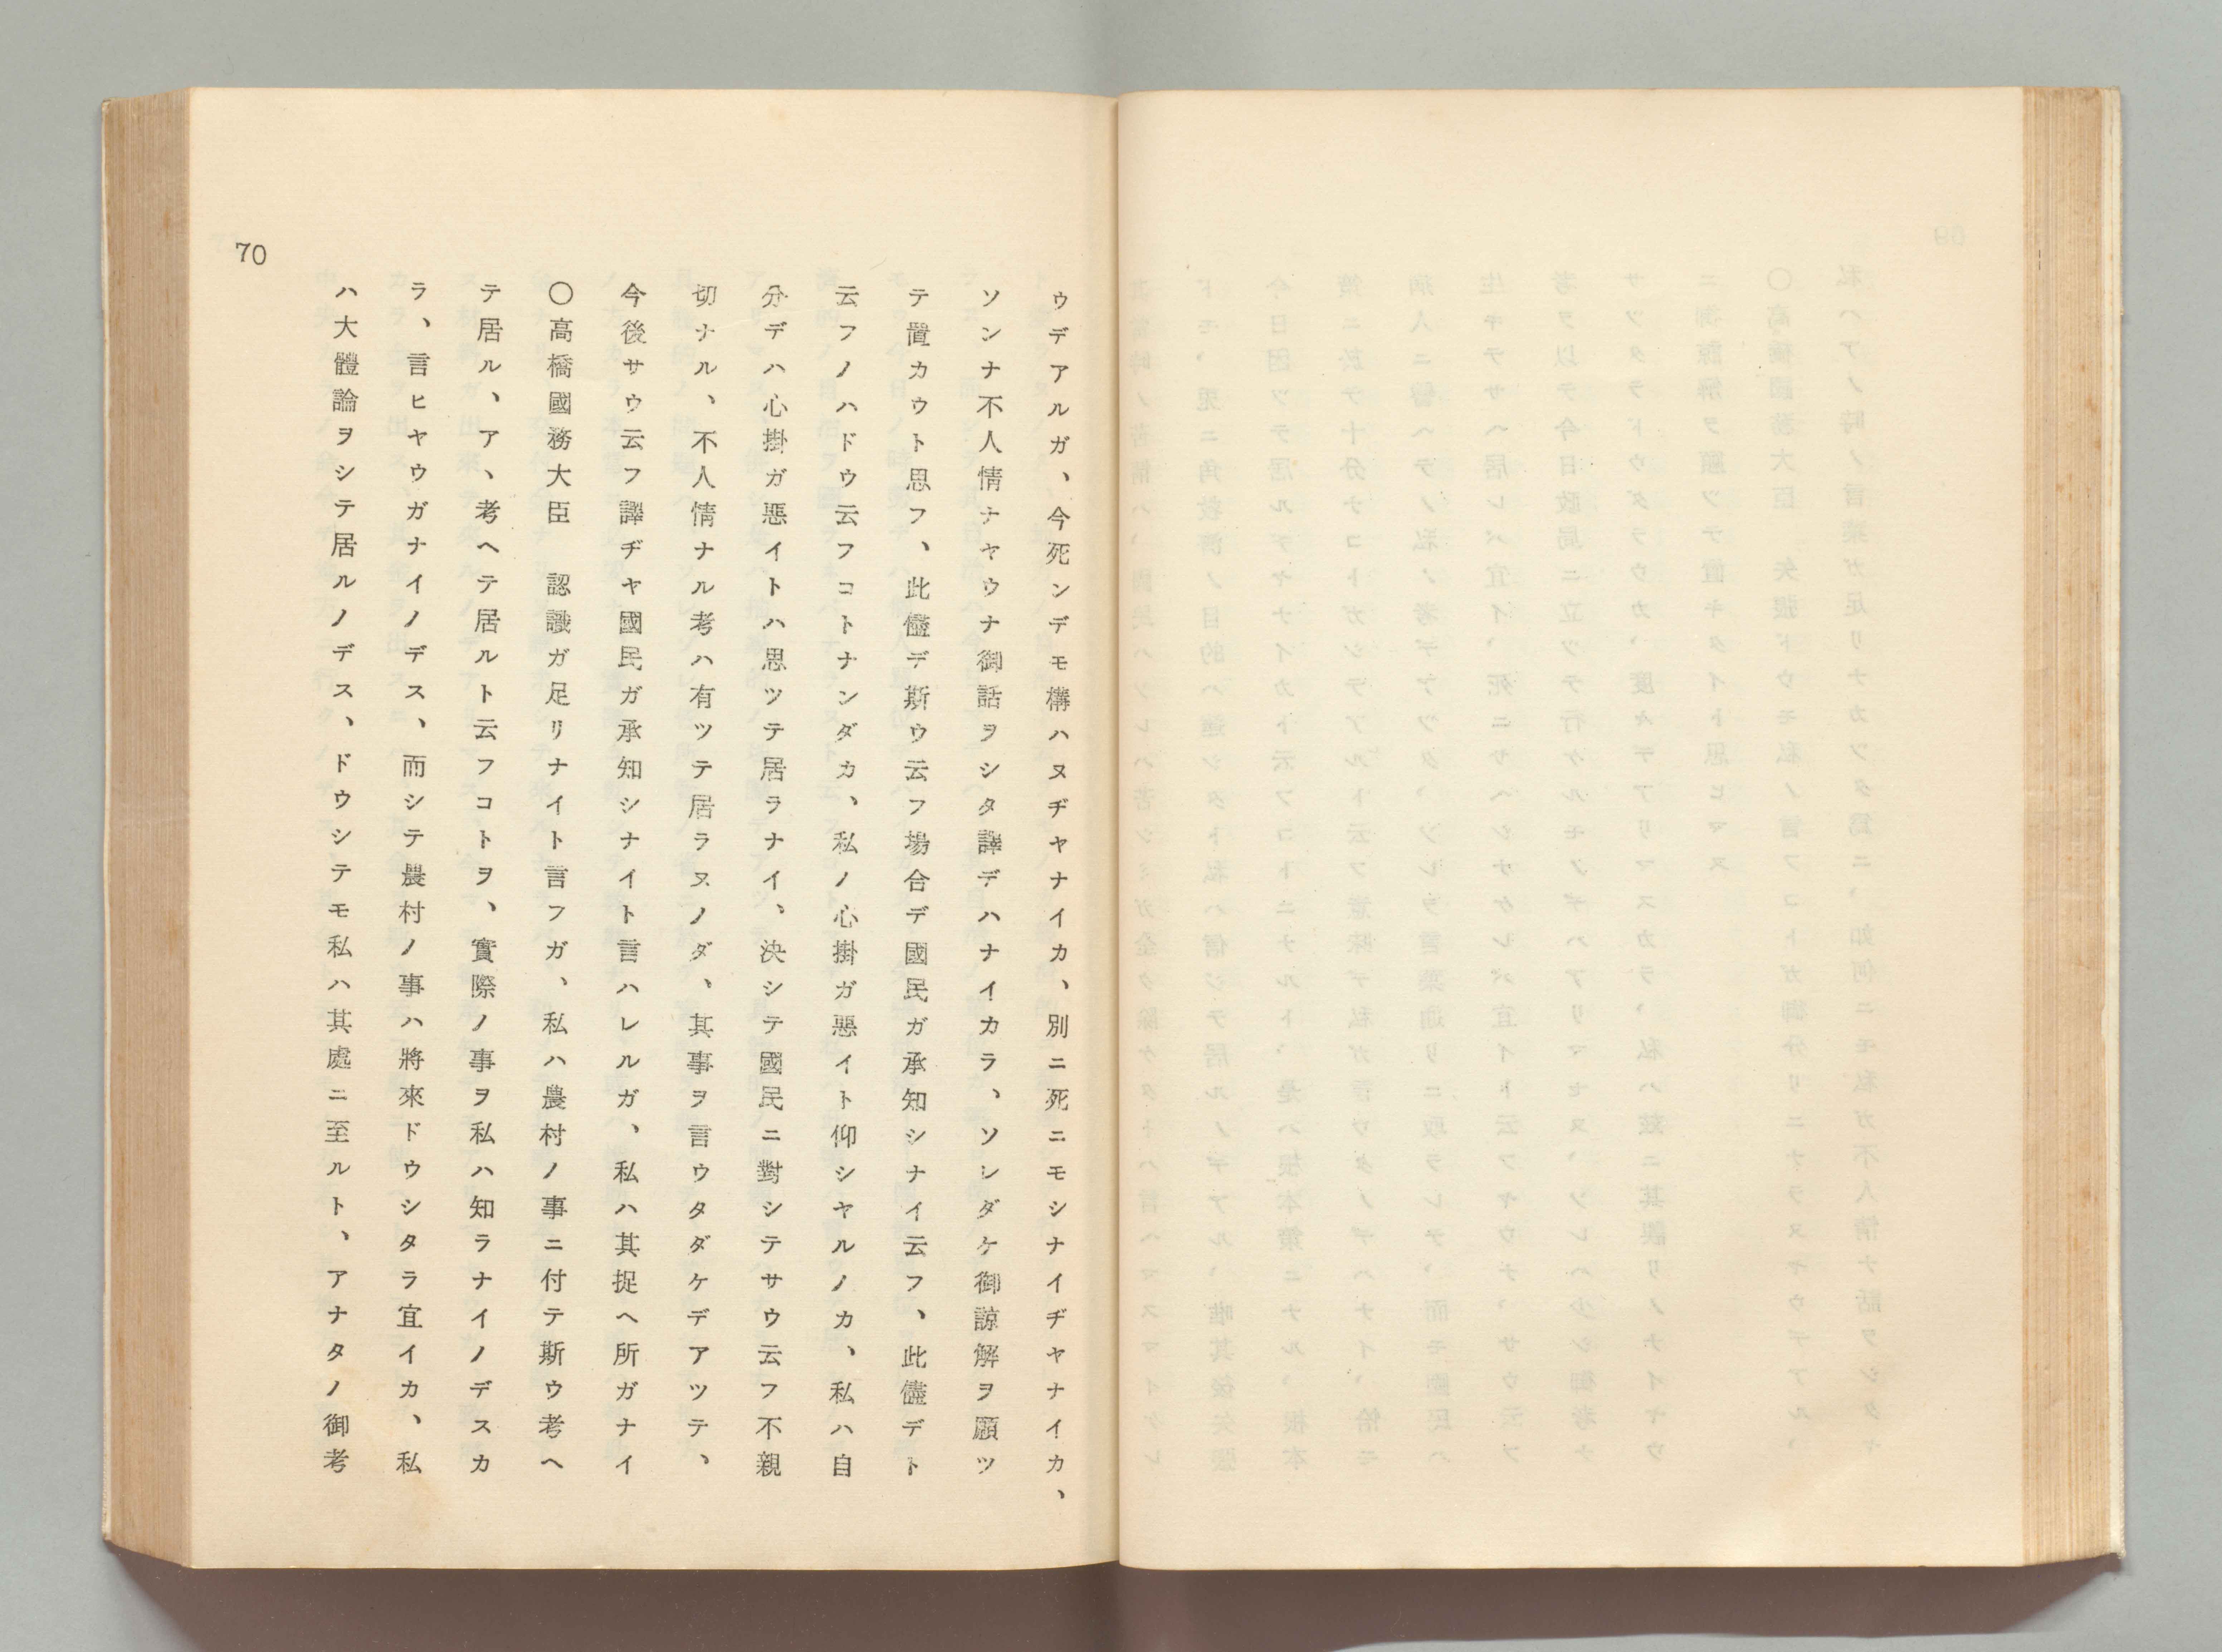 ウデアルガ、今死ンデモ構ハヌヂヤナイカ、別ニ死ニモシナイヂヤナイカ、
ソンナ不人情ナヤウナ御話ヲシタ譯デハナイカラ、ソレダケ御諒解ヲ願ツ
テ置カウト思フ、此儘デ斯ウ云フ場合デ國民ガ承知シナイ云フ、此儘デト
云フノハドウ云フコトナンダカ、私ノ心掛ガ惡イト仰シヤルノカ、私ハ自
分デハ心掛ガ惡イトハ思ツテ居ラナイ、決シテ國民ニ對シテサウ云フ不親
切ナル、不人情ナル考ハ有ツテ居ラヌノダ、其事ヲ言ウタダケデアツテ、
今後サウ云フ譯ヂヤ國民ガ承知シナイト言ハレルガ、私ハ其捉ヘ所ガナイ
〇高橋國務大臣 認識ガ足リナイト言フガ、私ハ農村ノ事ニ付テ斯ウ考ヘ
テ居ル、ア、考ヘテ居ルト云フコトヲ、實際ノ事ヲ私ハ知ラナイノデスカ
ラ、言ヒヤウガナイノデス、而シテ農村ノ事ハ將來ドウシタラ宜イカ、私
ハ大體論ヲシテ居ルノデス、ドウシテモ私ハ其處ニ至ルト、アナタノ御考
70